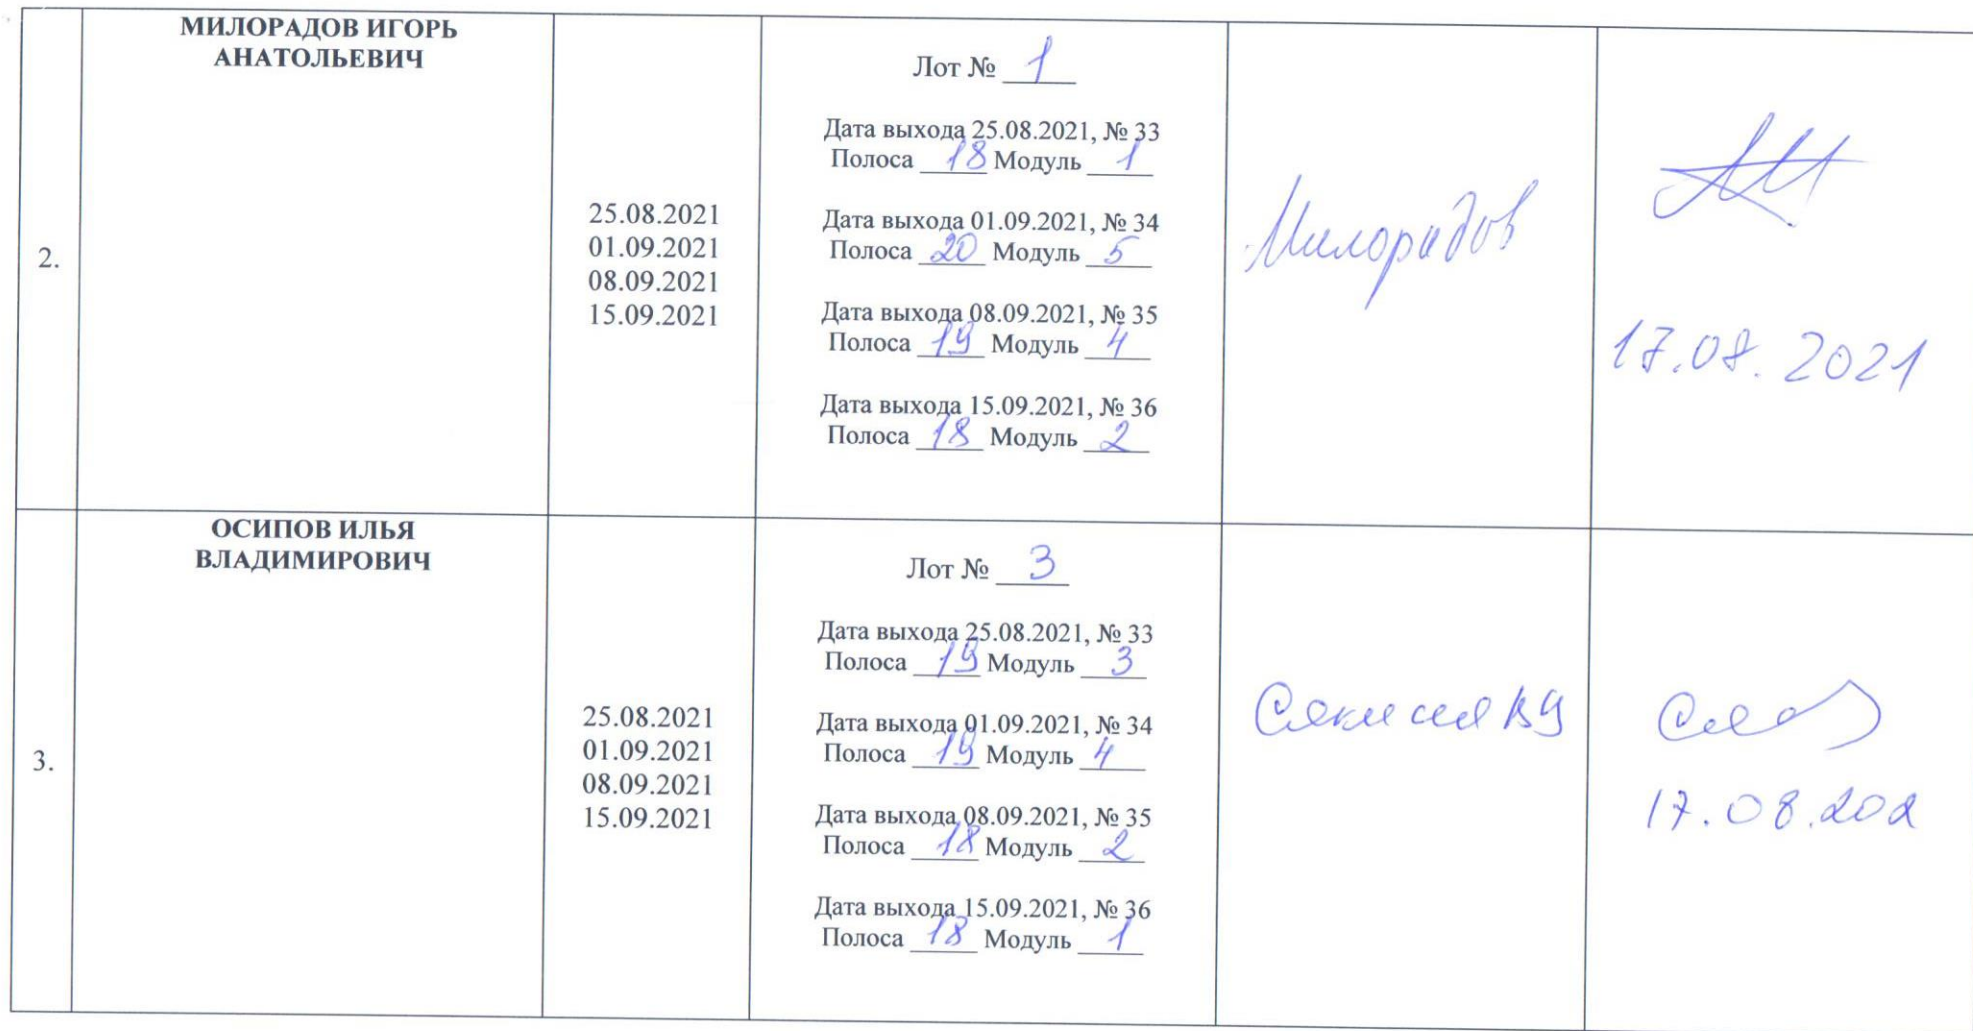 2.
МИЛОРАДОВ ИГОРЬ
АНАТОЛЬЕВИЧ
25.08.2021
01.09.2021
08.09.2021
15.09.2021
Лот № 1
Дата выхода 25.08.2021, № 33
Полоса 18 Модуль 1
Дата выхода 01.09.2021, № 34
Полоса 20 Модуль 5
Дата выхода 08.09.2021, № 35
Полоса 19 Модуль 4
Дата выхода 15.09.2021, № 36
Полоса 18 Модуль 2
Милорадов
17.08.2021
3.
ОСИПОВ ИЛЬЯ
ВЛАДИМИРОВИЧ
25.08.2021
01.09.2021
08.09.2021
15.09.2021
Лот № 3
Дата выхода 25.08.2021, № 33
Полоса 19 Модуль 3
Дата выхода 01.09.2021, № 34
Полоса 19 Модуль 4
Дата выхода 08.09.2021, № 35
Полоса 18 Модуль 2
Дата выхода 15.09.2021, № 36
Полоса 18 Модуль 1
17.08.202